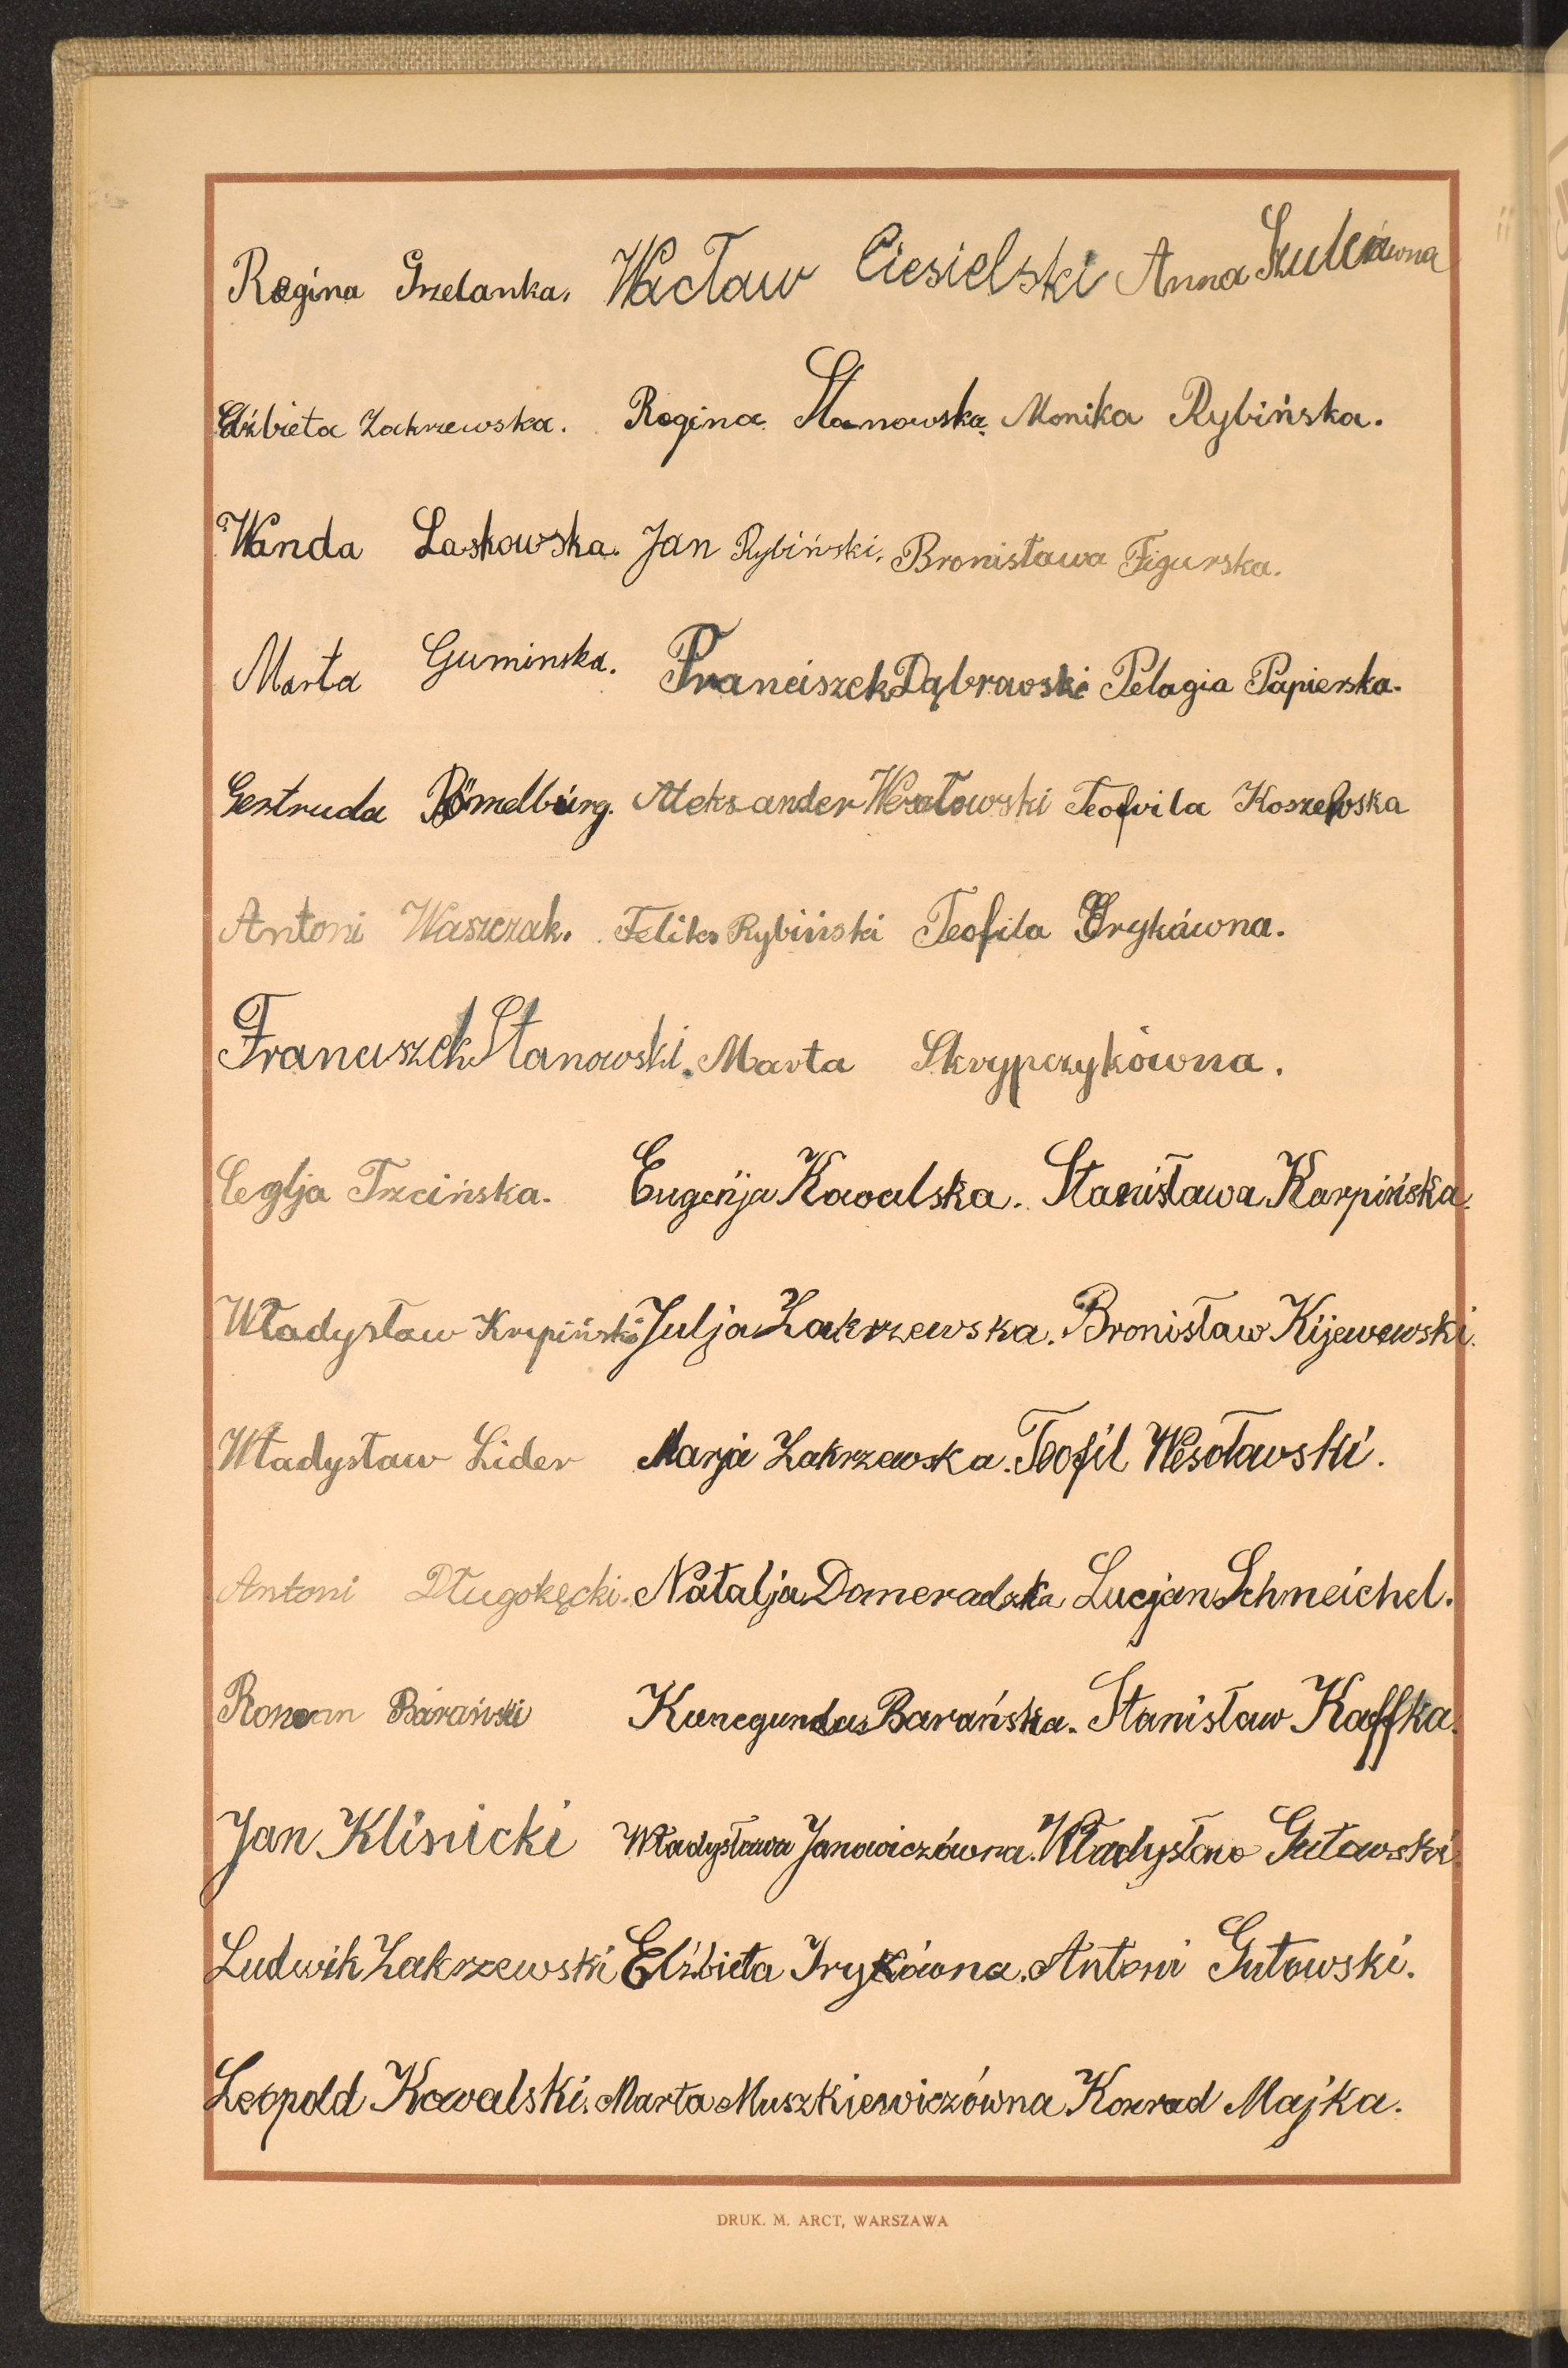 Regina Grzelanka. Wacław Ciesielski Anna Szulcówna
Elżbieta Zakrzewska. Regina Stanowska. Monika Rybińska.
Wanda Laskowska. Jan Rybiński. Bronisława Figurska.
Marta Guminska. Franciszek Dąbrowski Pelagia Papierska.
Gertruda Römelburg. Aleksander Wesołowski Teofila
Antoni Waszczak. Feliks Rybiński Teofila Irykówna.
Franciszek Stanowski. Marta Skrypczykówna.
Trzcińska. Eugenja Kowalska. Stanisława Karpińska.
Władysław Krepiński Julja Zakrzewska. Bronisław Kijewewski.
Władysław Lider Marja Zakrzewska. Teofil Wesołowski.
Antoni Długokęcki. Natalja Domeradzka Lucjan Schmeichel.
Roman Barański Kunegunda Barańska. Stanisław Kaffka.
Jan Klisnicki Władysława Janowiczówna. Władysław Gutowski.
Ludwik Zakrzewski Elżbieta Irykówna. Antoni Gutowski.
Leopold Kowalski. Marta Muszkiewiczówna Konrad Majka.
DRUK. M. ARCT, WARSZAWA